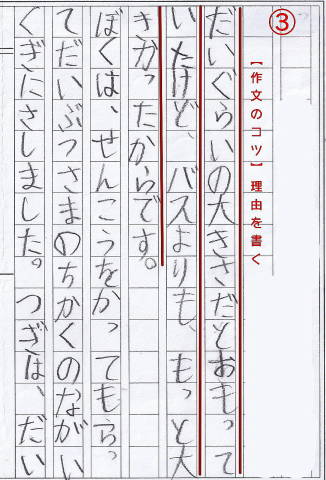 ③
【作文のコツ】理由を書く
だいぐらいの大きさだとおもって
いたけど、バスよりも、もっと大
きかったからです。
ぼくは、せんこうをかってもらっ
てだいぶつさまのちかくのながい
くぎにさしました。つぎは、だい